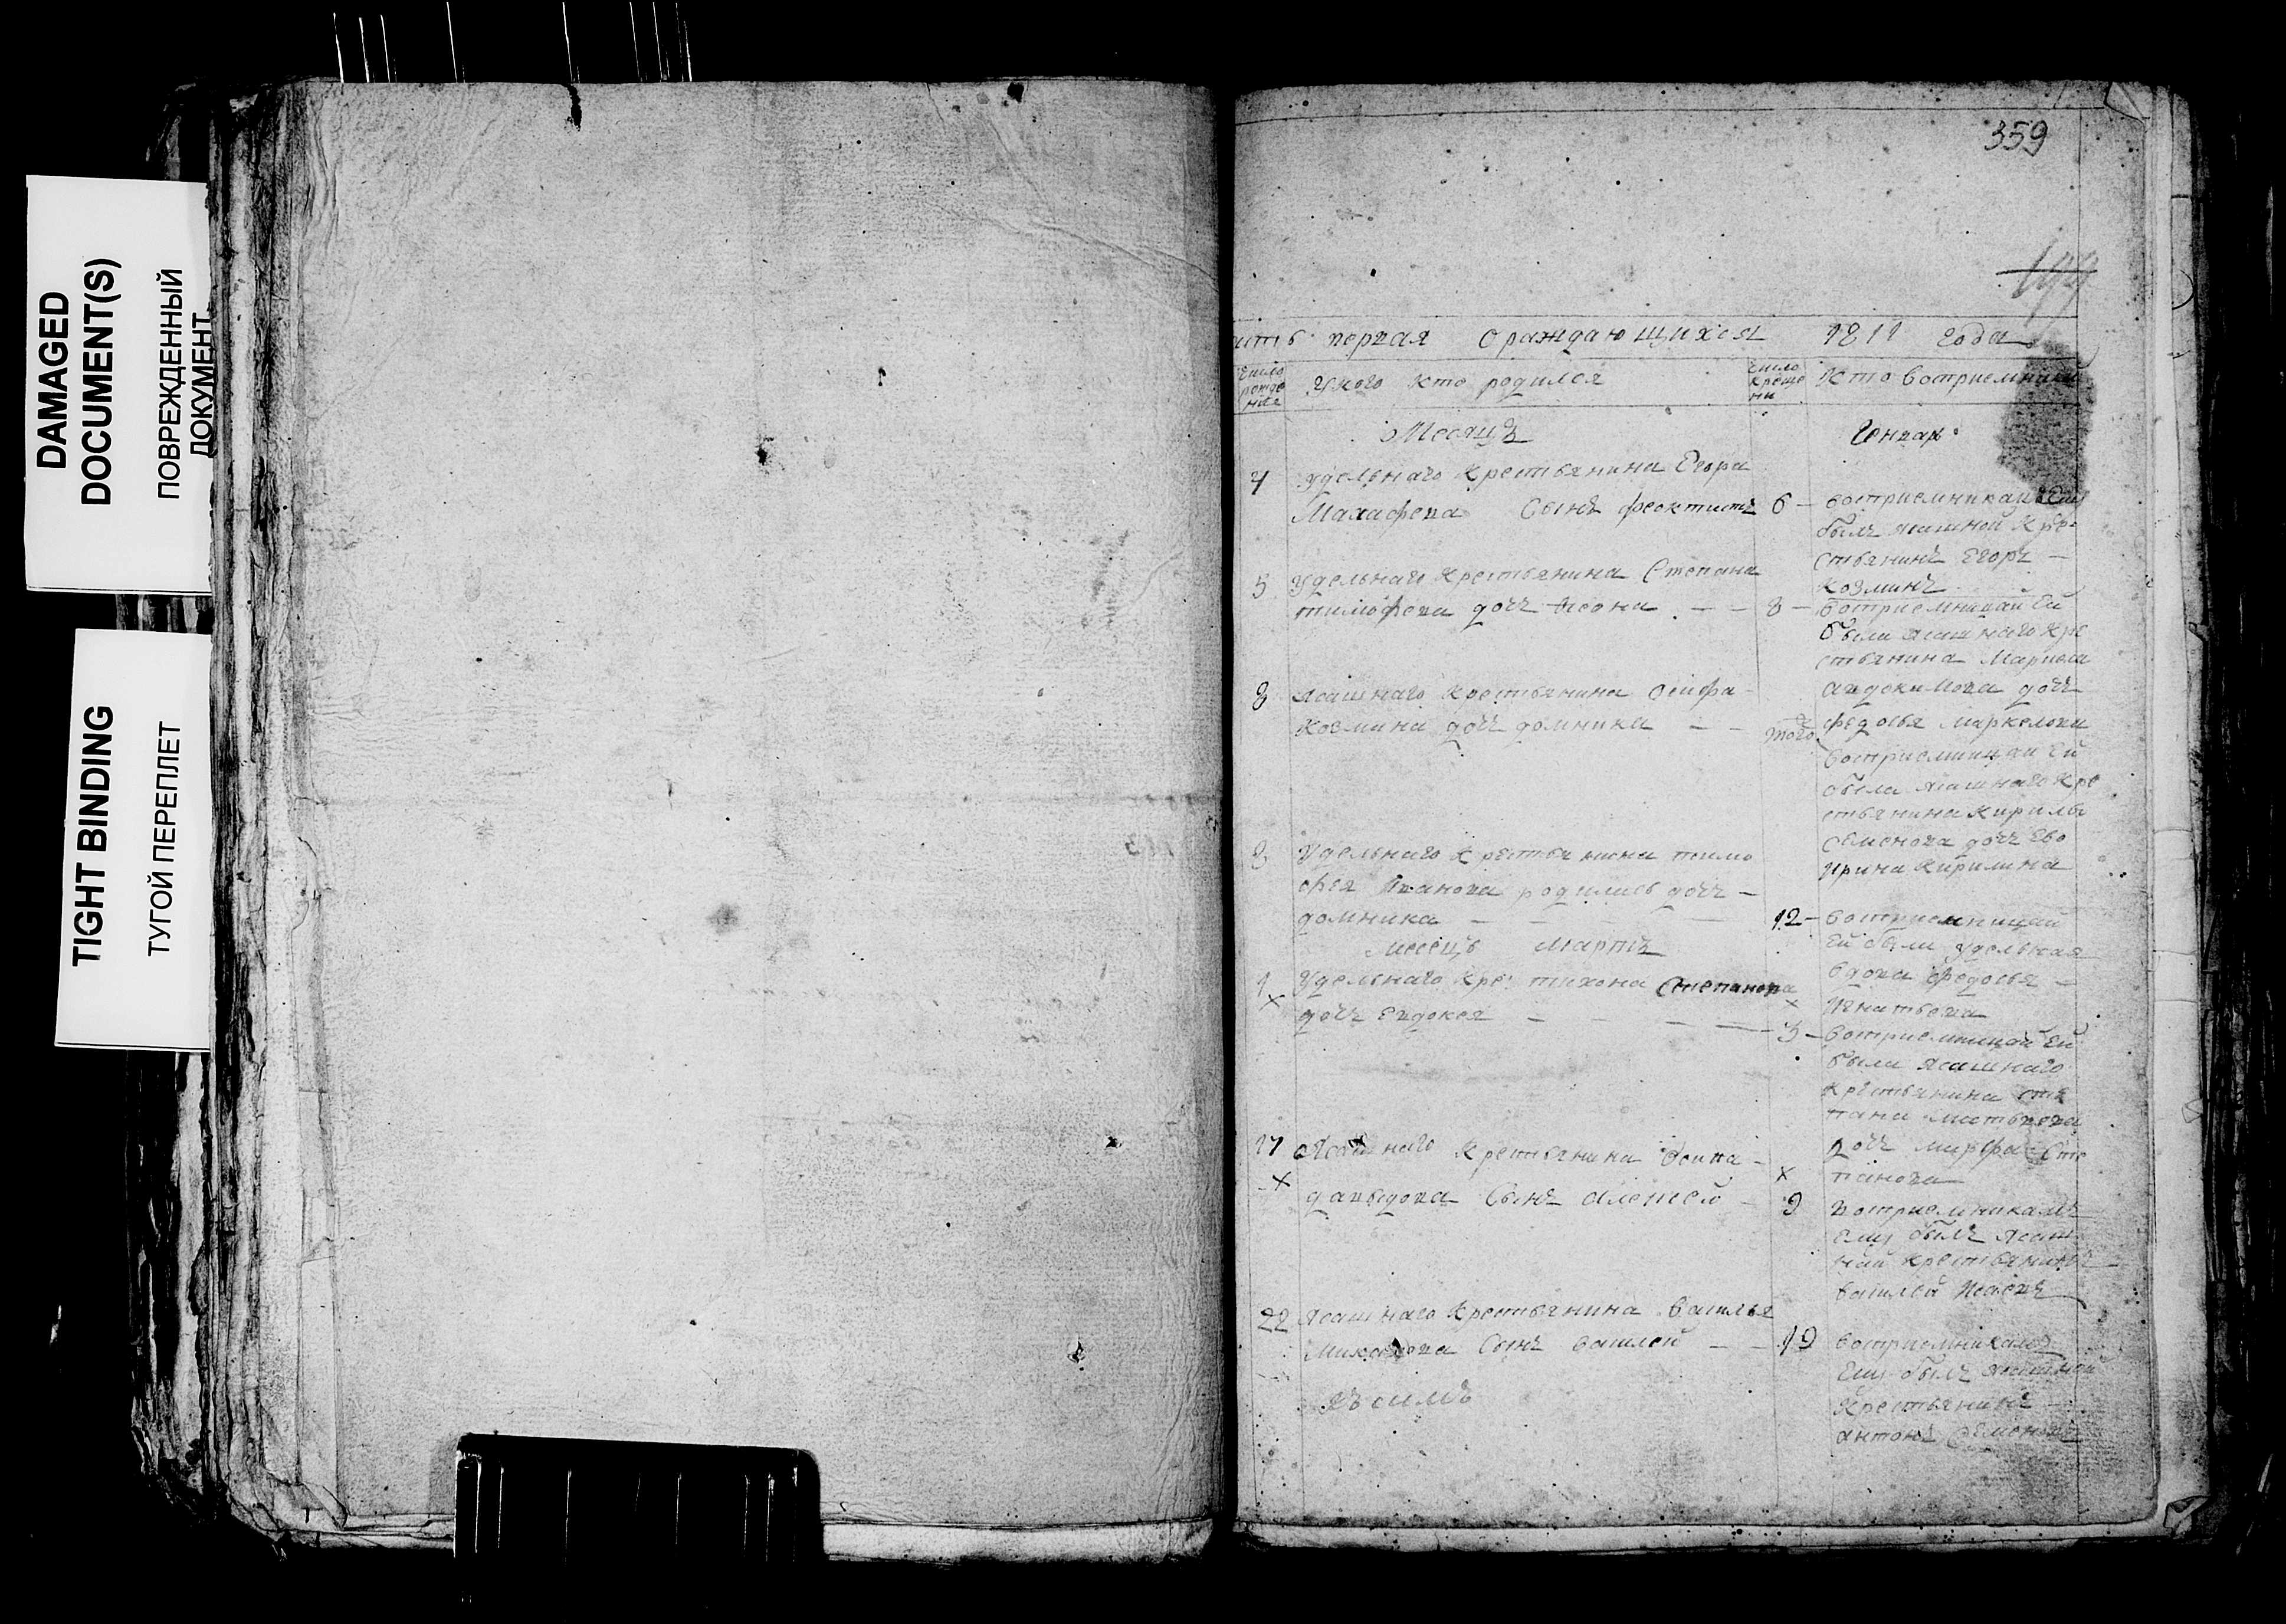 DAMAGED
DOCUMENT(S)
ПОВРЕЖДЕННЫЙ
ДОКУМЕНТ
TIGHT BINDING
ТУГОЙ ПЕРЕПЛЕТ
359
первая о раждающихся 1811 года
число рожде ния
У кого кто родился
число креще ни
Кто восприемники
Месяцъ Генварь
4 удельнаго крестьянина Егора
Малафеева Сынъ феоктистъ 6
восприемникамъ Ему
былъ ясашной кре
стьянинъ Егоръ
Козминъ
5 Удельнаго крестьянина Степана
тимофеева дочь 8
восприемницай Ей
была ясашнаго кре
стьянина Маркела
авдокимова дочь
федосья маркелова
8 Ясашнаго крестьянина
Козмина дочь домника того
восприемницаи Ей
была ясашнаго кре
стьянина Кирилы
Семенова дочь Ево
Ирина Кирилина
Удельнаго крестьянина тимо
фея Иванова родилась дочь
домника 12
восприемницай
Ей была удельная
вдова федосья
Игнатьева
месецъ Мартъ
1 Удельнаго кре: тихона Степанова
дочь Евдокея 3
восприемницай Ей
была ясашнаго
крестьянина сте
пана матвеева
дочь марфа Сте
панова
17 Ясашнаго крестьянина Осипа
давыдова Сынъ алексей 9
восприемникамъ
Ему былъ ясаш
ной крестьянинъ
василей
22 Ясашнаго крестьянина василья
Сынъ василей 19
восприемникамъ
Ему былъ ясашной
крестьянинъ
антонъ Семеновъ